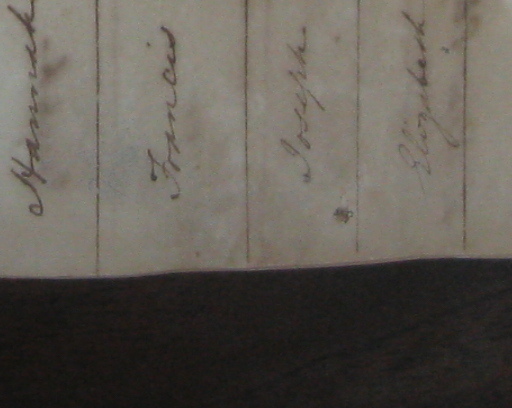 Hannah
Francis
Joseph
Elizabeth